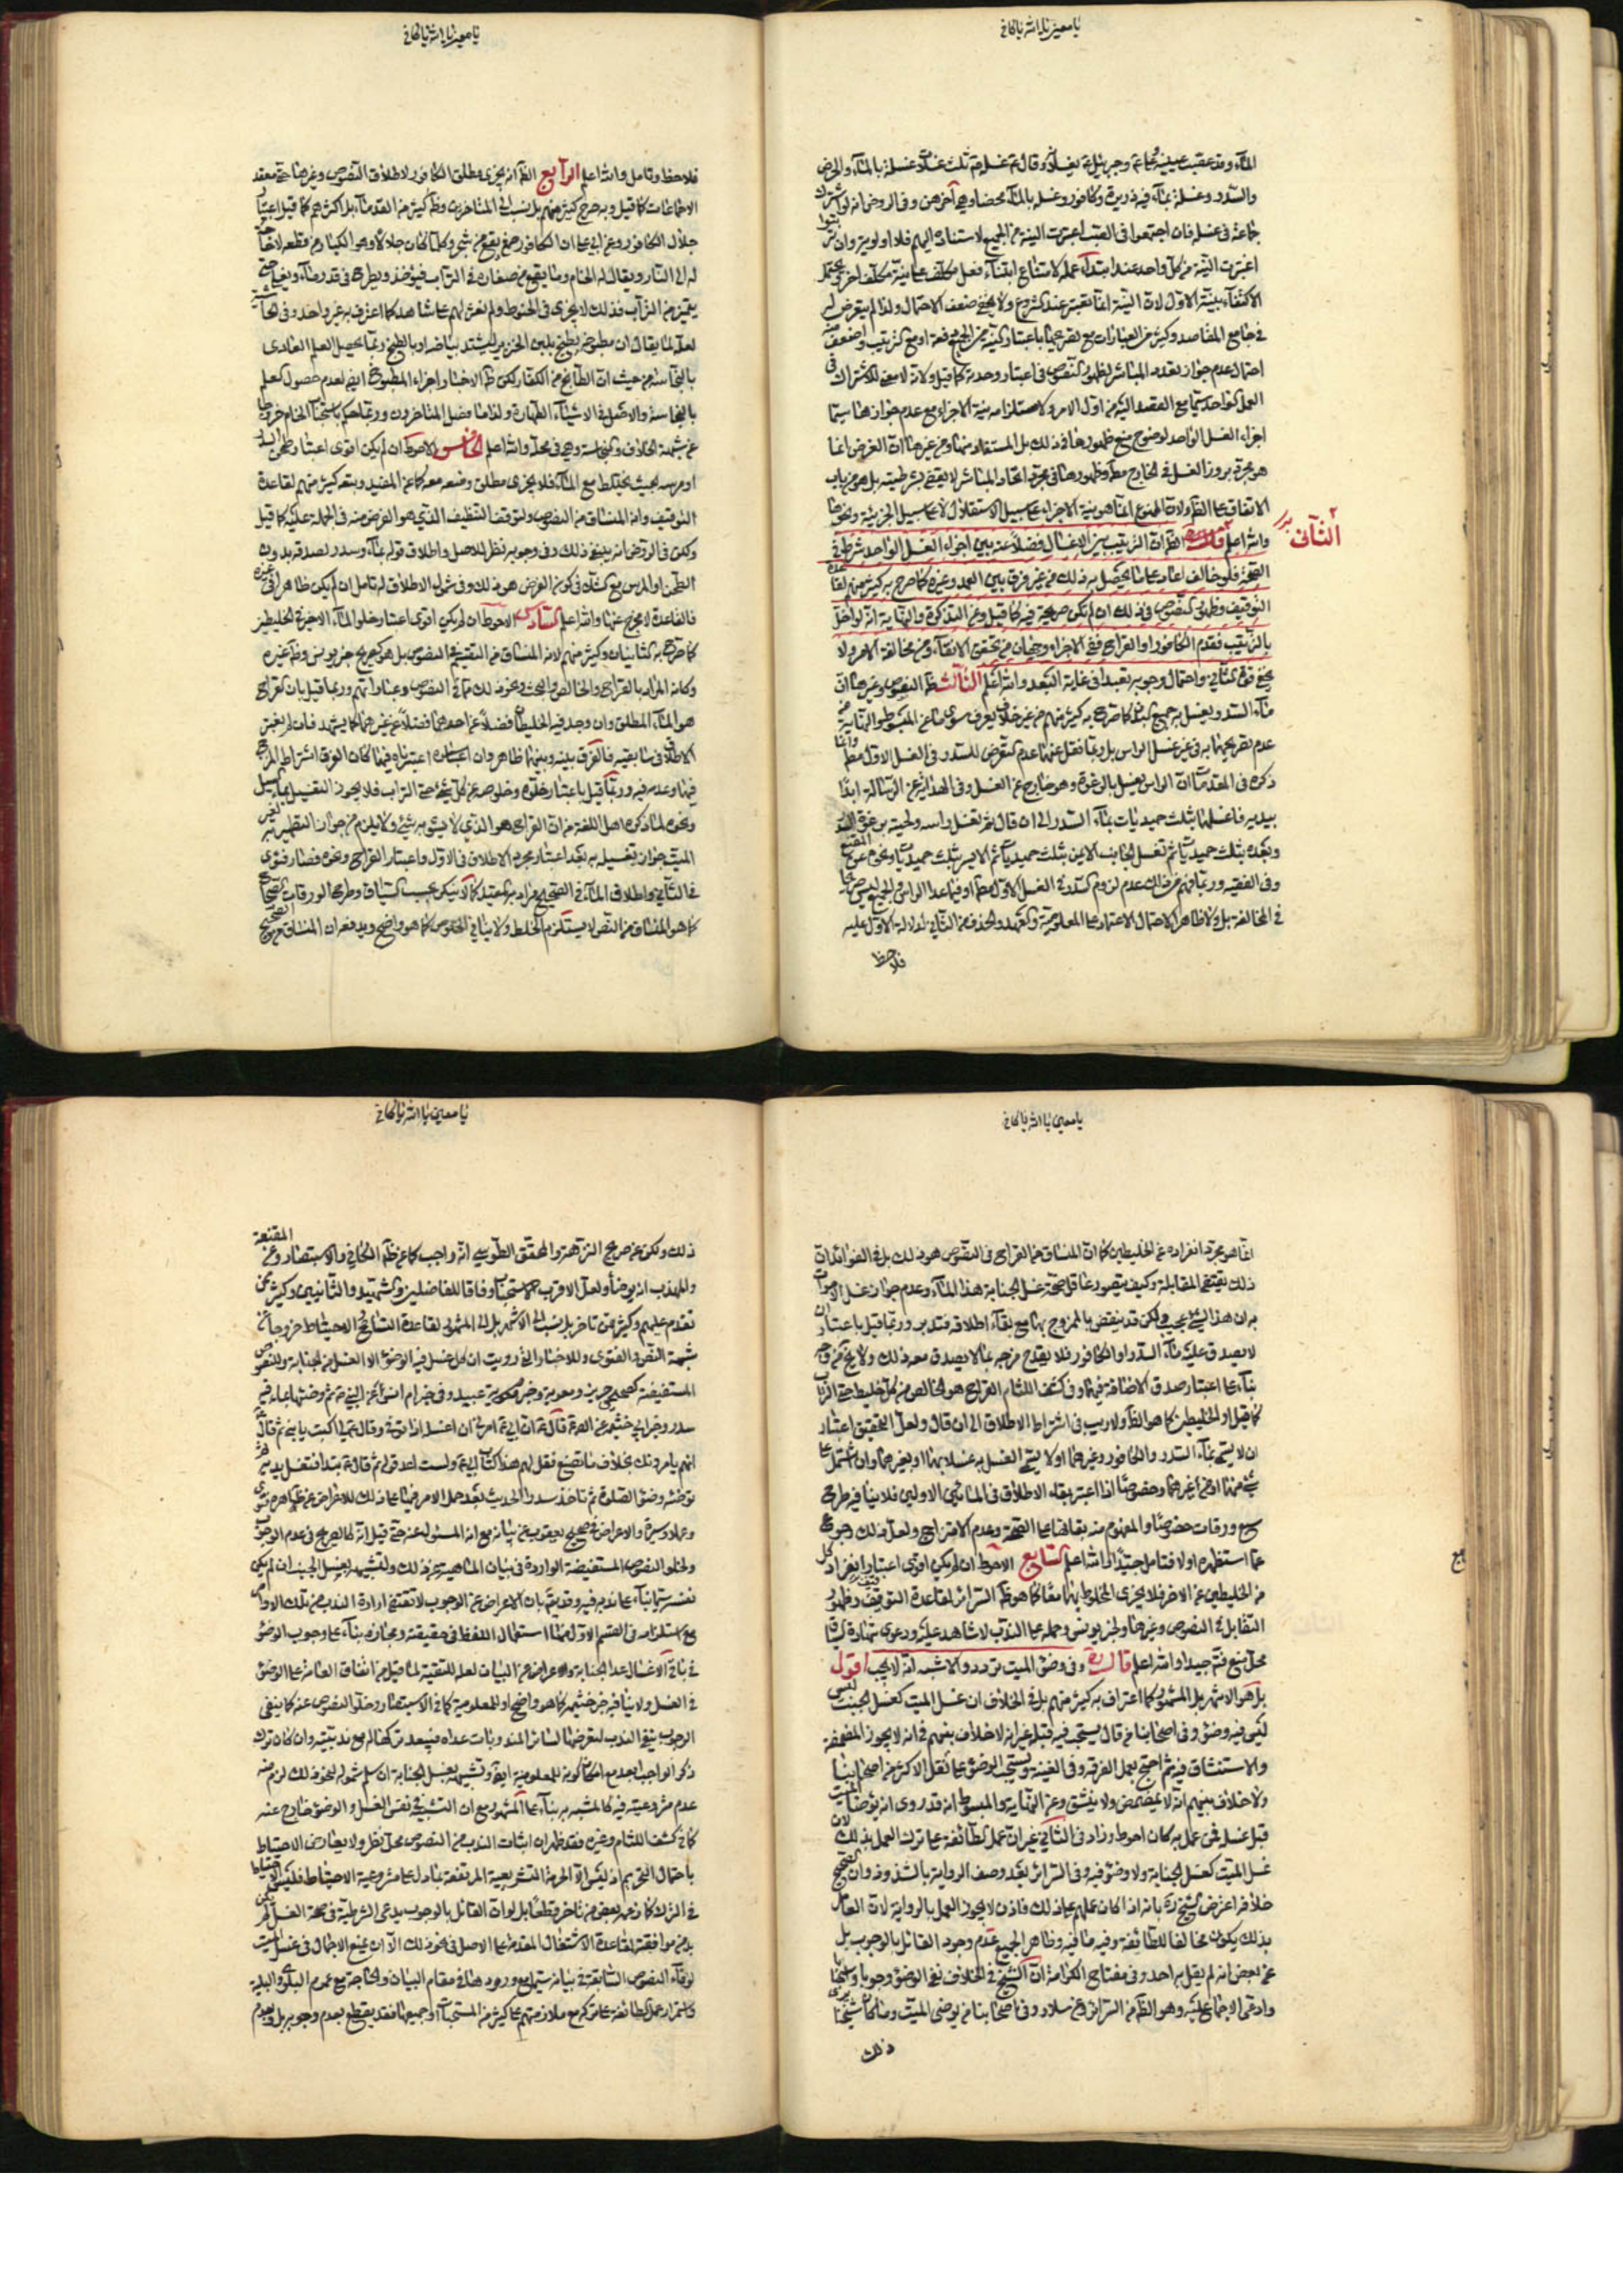 يا معين يا الله يا كافي
الماء وقد
والسدر وغسلة بماء فيه ذريرة وكافور وغسله بالماء محضا وهي آخرهن وفي الروض انه لو اشترك
جماعة في غسله فان اجتمعوا في الصب اعتبرت النية من الجميع لاستناده اليهم فلا اولوية وان ترتبوا
اعتبرت النية من كل واحد عند ابتداء عمله لامتناع ابتناء فعل مكلف على نية مكلف اخر ويحتمل
الاكتفاء بنية الاول لان النية انما تعتبر عند الشروع ولا يخفى ضعف الاحتمال ولذا لم يتعرض له
في جامع المقاصد وكثير من العبارات مع تصريحها باعتبار النية من الجميع دفعة او مع الترتيب واضعف منه
احتمال عدم جواز تعدد المباشر لظهور النصوص في اعتبار وحدته كما قيل ولانه لا معنى للاشتراك في
العمل الواحد سيما مع القصد اليه من اول الامر ولاستلزامه نية الاجزاء مع عدم جوازها سيما
اجزاء الغسل الواحد لوضوح منع ظهورها في ذلك بل المستفاد منها ومن غيرها ان الغرض انما
هو مجرد بروز الغسل في الخارج مطلقا وظهورها في مجرد اتحاد المباشر لا يقضي بشرطيته بل هو من باب
الاتفاق على الظاهر ولان الممنوع انما هو نية الاجزاء على سبيل الاستقلال لا على سبيل الجزئية ونحوها
والله اعلم
الثاني
الظ ان الترتيب بين الاغسال فضلا عنه بين اجزاء الغسل الواحد شرط في
الصحة فلو خالف اعاد على ما يحصل به ذلك من غير فرق بين العمد وغيره كما صرح به كثير منهم لقاعدة
التوقيف وظهور النصوص في ذلك ان لم يكن صريحة فيه كما قيل وعن التذكرة والنهاية انه لو اخل
بالترتيب فقدم الكافور او القراح ففي الاجزاء وجهان من تحقق الانقاء ومن مخالفة الامر ولا
يخفى قوة الثاني واحتمال وجوبه تعبدا في غاية البعد والله اعلم الثالث ظ النصوص وغيرها ان
ماء السدر يغسل به جميع البدن كما صرح به كثير منهم من غير خلاف يعرف سوى ما عن المبسوط والنهاية من
عدم تصريحهما به في غير غسل الراس بل ربما نقل عنهما عدم التعرض للسدر في الغسل الاول مطلقا وانما
ذكره في المقدمات ان الراس يغسل بالرغوة وهو خارج عن الغسل وفي الهداية عن الرسالة ابدأ
بيديه فاغسلهما بثلث حميديات بماء السدر الى ان قال ثم تغسل راسه ولحيته برغوة السدر
وبعده بثلث حميديات ثم تغسل الجانب الايمن بثلث حميديات ثم الايسر بثلث حميديات ونحوه عن المقنع
وفي الفقيه وربما فهم من ذلك عدم لزوم السدر في الغسل الاول مطلقا او فيما عدا الراس والجميع ليس صريحا
في المخالفة بل ولا ظاهرا لاحتمال الاعتماد على المعلومية والتعهد والحذف من الثاني لدلالة الاول عليه
فلاحظ
يا معين يا الله يا كافي
فلاحظ وتامل والله اعلم الرابع الظ انه يجزي مطلق الكافور لاطلاق النصوص وغيرها حتى معقد
الاجماعات كما قيل وبه صرح كثير منهم بل نسب الى المتاخرين وظ كثير من القدماء بل اكثرهم كما قيل اعتبار
جلال الكافور وعن ابي علي ان الكافور صمغ يقع من شجر وكلما كان جلالا وهو الكبار من قطعه لا حاجة
له الى النار ويقال له الخام وما يقع من صغاره في التراب فيؤخذ ويطرح في قدر ماء ويغلى حتى
يتميز من التراب فذلك لا يجزي في الحنوط ولم نعثر لهم على شاهد كما اعترف به غير واحد وفي الحاشية
لعله لما يقال ان مطبوخه يطبخ بلبن الخنزير ليشتد بياضه او بالطبخ وربما يحصل العلم العادي
بالنجاسة من حيث ان الطابخ من الكفار لكن ظ الاخبار اجزاء المطبوخ ايضا لعدم حصول العلم
بالنجاسة والاصل في الاشياء الطهارة ولذا ما فصل المتاخرون وربما حكم باستحباب الخام خروجا
عن شبهة الخلاف والنجاسة وهي في محله والله اعلم الخامس الاحوط ان لم يكن اقوى اعتبار طحن السدر
او مرسه بحيث يختلط مع الماء فلا يجزي مطلق وضعه معه كما عن المفيد وتبعه كثير منهم لقاعدة
التوقيف وانه المنساق من النصوص ولتوقف التنظيف الذي هو الغرض منه في الجملة عليه كما قيل
ولكن في الروض انه ينبغي ذلك وفي وجوبه نظر للاصل واطلاق قوله بماء وسدر لصدقه بدون
الطحن او المرس مع الشك في كون الغرض هو ذلك وفي شمول الاطلاق له تامل ان لم يكن ظاهرا في غيره
فالقاعدة لا مخرج عنها والله اعلم السادس الاحوط ان لم يكن اقوى اعتبار خلو الماء الاخير من الخليطين
كما صرح به الثانيان وكثير منهم لانه المنساق من التقييد في النصوص بل هو صريح خبر يونس وظ غيره
وكانه المراد بالقراح والخالص والبحت ونحو ذلك مما في النصوص وعباراتهم وربما قيل بان القراح
هو الماء المطلق وان وجد فيه الخليطان فضلا عن احدهما فضلا عن غيرهما كما يشهد
الاطلاق في سابقيه فالفرق بينه وبينهما ظاهر وان
فيهما وعدمه فيه وربما قيل باعتبار خلوه وخلوصه عن كل شيء حتى التراب فلا يجوز التغسيل بماء السيل
ونحوه لما ذكره اهل اللغة من ان القراح هو الذي لا يشوبه شيء ولا يلزم من جواز التطهير به لغير
الميت جواز تغسيله به بعد اعتبار مجرد الاطلاق في الاول واعتبار القراح ونحوه فضلا
في الثاني واطلاق الماء في الصحيح مراد به المقيد كما لا ينكر بحسب السياق وطرح الورقات
كما هو المنساق من النص لا يستلزم الخلط ولا ينافي الخلوص كما هو واضح ويدفعه ان المنساق
يا معين يا الله يا كافي
انما هو مجرد انفراده عن الخليطين كما ان المنساق من القراح في النصوص هو ذلك بل في الفوائد ان
ذلك يقتضي المقابلة وكيف يتصور عاقل صحة غسل الجنابة بهذا الماء وعدم جواز غسل الاموات
به ان هذا لشيء عجيب ولكن قد ينقض بالممزوج بهما مع بقاء اطلاقه فتدبر وربما قيل باعتبار ان
لا يصدق عليه ماء السدر او الكافور فلا يقدح مزجه بما لا يصدق معه ذلك ولا يخ من وجه
بناء على اعتبار صدق الاضافة فيهما وفي كشف اللثام القراح هو الخالص من كل خليط حتى التراب
كما قيل او الخليطين كما هو الظ ولا ريب في اشتراط الاطلاق الى ان قال ولعل التحقيق اعتبار
ان لا يسمى بماء السدر والكافور وغيرهما او لا يسمى الغسل به غسلا بهما او بغيرهما وان اشتمل على
شيء منهما او من غيرهما وخصوصا اذا اعتبر بقاء الاطلاق في المائين الاولين فلا ينافيه طرح
سبع ورقات خصوصا والمفهوم منه بقائها على الصحة وعدم الامتزاج ولعل ذلك رجوع
عما استظهره اولا فتامل جيدا والله اعلم السابع الاحوط ان لم يكن اقوى اعتبار انفراد كل
من الخليطين عن الاخر فلا يجزي المخلوط بهما معا كما هو ظ السرائر لقاعدة التوقيف وظهور
التقابل في النصوص وغيرها ولخبر يونس وحمله على الندب لا شاهد عليه ودعوى شهادة السياق
محل منع فتدبر جيدا والله اعلم قال ره وفي وضوء الميت تردد والاشبه انه لا يجب اقول
بل هو الاشهر بل المشهور كما اعترف به كثير منهم بل في الخلاف ان غسل الميت كغسل الجنب ليس
فيه وضوء وفي اصحابنا من قال يستحب فيه قبله غير انه لا خلاف بينهم في انه لا يجوز المضمضة
والاستنشاق فيه ثم احتج بعمل الفرقة وفي الغنية ويستحب الوضوء على نقل الاكثر من اصحابنا
ولا خلاف بينهم انه لا يمضمض ولا ينشق وعن النهاية والمبسوط انه قد روي انه يوضأ الميت
قبل غسله فمن عمل به كان احوط وزاد في الثاني غير ان عمل الطائفة على ترك العمل بذلك لان
غسل الميت كغسل الجنابة ولا وضوء فيه وفي السرائر بعد وصف الرواية بالشذوذ وان الصحيح
خلافه اعترض الشيخ ره بانه اذا كان عملهم على ذلك فاذن لا يجوز العمل بالرواية لان العامل
بذلك يكون مخالفا للطائفة وفيه ما فيه وظاهر الجميع عدم وجود القائل بالوجوب بل
عن بعض انه لم يقل به احد وفي مفتاح الكرامة ان الشيخ في الخلاف نفى الوضوء وجوبا واستحبابا
وادعى الاجماع عليه وهو الظ من السرائر وعن سلار وفي اصحابنا من يوضي الميت وما كان شيخنا يرى
ذلك
يا معين يا الله يا كافي
ذلك ولكن عن صريح النزهة والمحقق الطوسي انه واجب كما عن ظ الكافي والاستبصار وعن المقنعة
والمهذب انه يوضأ ولعل الاقرب الاستحباب وفاقا للفاضلين والشهيد والثانيين وكثير ممن
تقدم عليهم وكثير ممن تاخر بل نسب الى الاشهر بل الى المشهور لقاعدة التسامح والاحتياط خروجا عن
شبهة النص والفتوى وللاخبار التي رويت ان كل غسل فيه الوضوء الا الغسل من الجنابة وللنصوص
المستفيضة كصحيح حريز ومعوية وخبر معوية عبيد وفي خبر ام انس عن النبي ثم وضئيها بماء فيه
سدر وخبر ابي خيثمة عن الص ع قال ان ابي ع امرني ان اغسله اذا توفي وقال لي اكتب يا بني ثم قال
انهم يامرونك بخلاف ما تصنع فقل لهم هذا كتاب ابي ع ولست اعدو قوله ثم قال تبتدا فتغسل يديه ثم
توضئه وضوء الصلوة ثم تاخذ سدرا الحديث بعد حمل الامر فيها على ذلك للاعراض عن ظاهرها
وعملا وسيرة والاعراض في صحيح يعقوب عن بيانه مع انه المسئول عنه حتى قيل انه كالصريح في عدم الوجوب
ولخلو النصوص المستفيضة الواردة في بيان الماهية من ذلك ولتشبيهه بغسل الجنب ان لم يكن
نفسه
مع استلزامه في القسم الاول منها استعمال اللفظ في حقيقته ومجازه بناء على وجوب الوضوء
في باقي الاغسال عدا الجنابة والاعراض عن البيان لعله للتقية لما قيل من اتفاق العامة على الوضوء
في الغسل ولا ينافيه خبر خيثمة كما هو واضح او للمعلومية كما في الاستبصار وخلو النصوص عنه كما ينفي
الوجوب ينفي الندب لتعرضها لسائر المندوبات عداه فيبعد تركها له مع ندبيته وان كان ترك
ذكر الواجب ابعد مع امكان كونه للمعلومية ايضا وتشبيهه بغسل الجنابة ان سلم شموله لنحو ذلك لزم منه
عدم مشروعيته فيه كالمشبه به بناء على المشهور مع ان التشبيه في نفس الغسل والوضوء خارج عنه
كما في كشف اللثام وغيره فقد ظهر ان اثبات الندب من النصوص محل نظر ولا يعارض الاحتياط
باحتمال التحريم اذ ليس الا الحرمة التشريعية المرتفعة بما دل على مشروعية الاحتياط فليس الاحتياط
في الترك كما زعمه بعض من تاخر وقطعا بل لو ان القائل بالوجوب يدعي الشرطية في صحة الغسل
بد من موافقته لقاعدة الاشتغال المقدمة على الاصل في نحو ذلك الا ان يمنع الاجمال في غسل الميت
لوفاء النصوص السابقة في بيانه سيما مع ورودها في مقام البيان والحاجة مع عموم البلوى والبلية
واستمرار عمل الطائفة على تركه مع ملازمتهم على كثير من المستحبات او جميعها فقد يقطع بعدم وجوبه بل وبعدم